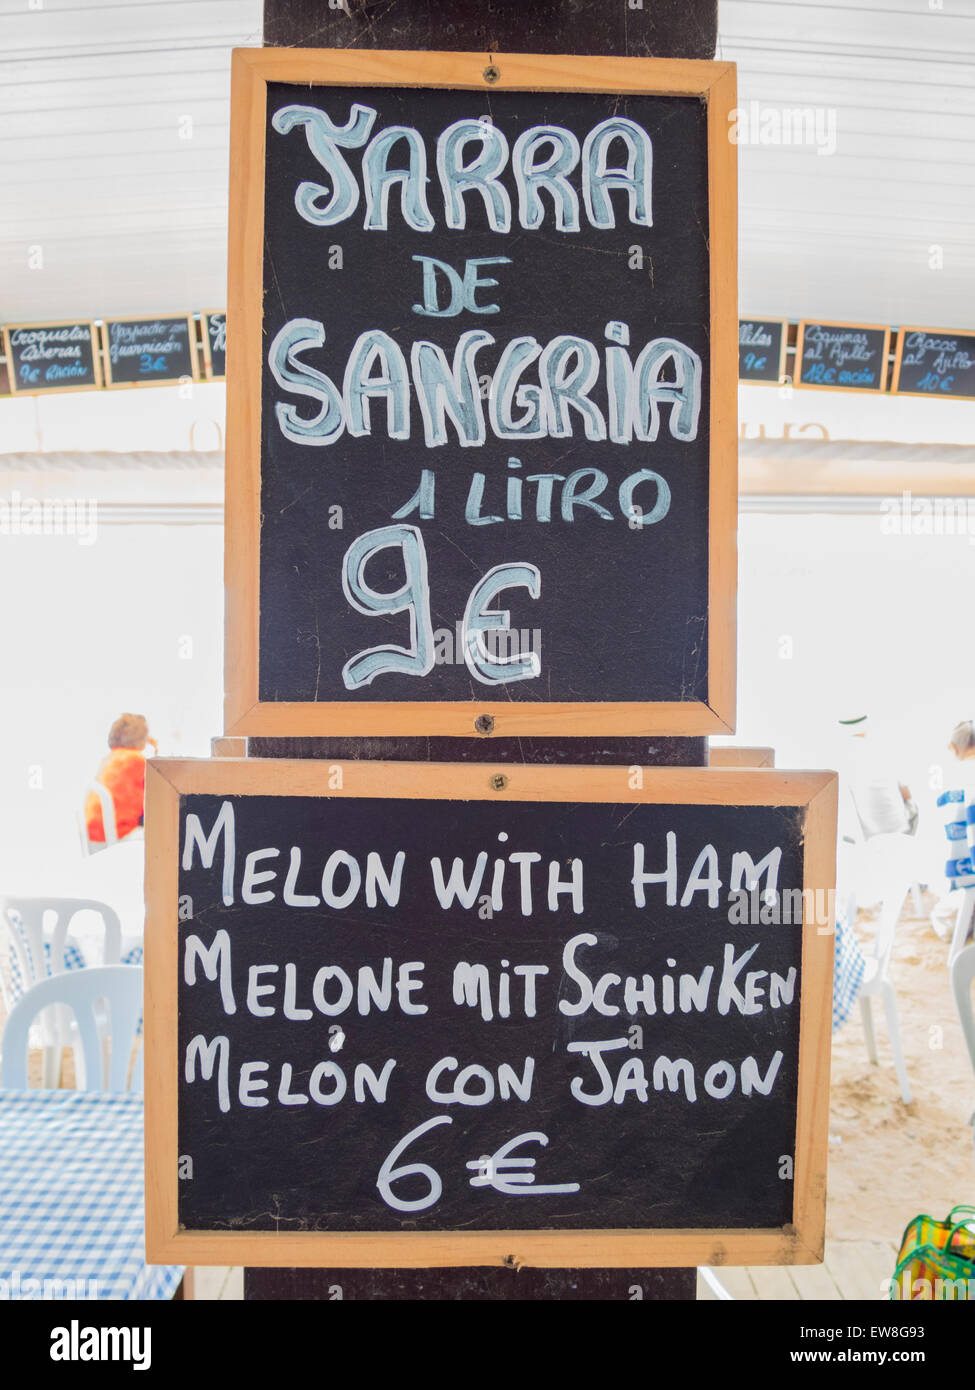 JARRA
DE
SANGRIA
1 LITRO
9€
MELON WITH HAM
MELONE MIT SCHINKEN
MELÓN CON JAMON
6 €
Croquetas
Caseras
9€ RACIÓN
Gazpacho con
Guarnición
3€
9€
Coquinas
al Ajillo
12€ RACIÓN
Chocos
al Ajillo
10€
alamy stock photo
EW8G93
www.alamy.com